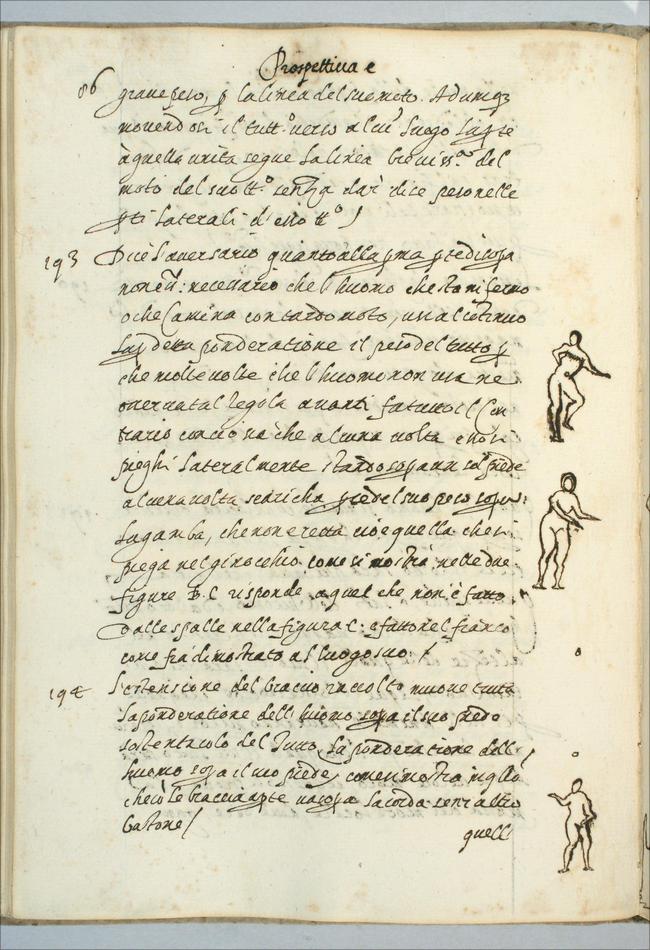 Prospettiua e
86
graue peso, p la linea del suo moto. Adunq3
mouendosi il tutto uerso alcu luogo la pte
à quella unita segue la linea breuissa del
moto del suo tto senza dar di se peso nelle
pti laterali d'esso tto /
193 Dice l'auersario quanto alla pma pte di sopa
non è necessario che l'huomo che sta in fermo
o che camina con tardo moto, usi al cotinuo
la detta ponderatione
che molte uolte che l'huomo non usa ne
osserua tal regola auanti fa tutto il con
trario concio sia che alcuna uolta esso si
pieghi lateralmente stando sopa un sol piede
alcuna uolta scaricha pte del suo peso sopa
la gamba, che non è retta cioe quella che si
piega nel ginocchio come si mostra nelle due
figure B. C. risponde, a quel che non è fatto
dalle spalle nella figura C: è fatto nel fianco
come fia dimostrato al luogo suo /
194 L'estensione del braccio racolto muoue tutta
la ponderatione dell'huomo sopa il suo piede
sostentaculo del Tutto, la ponderatione dell'
huomo sopa il suo piede, come si mostra in quello
che cō le braccia apte ua sopa la corda senz'altro
bastone /
quell